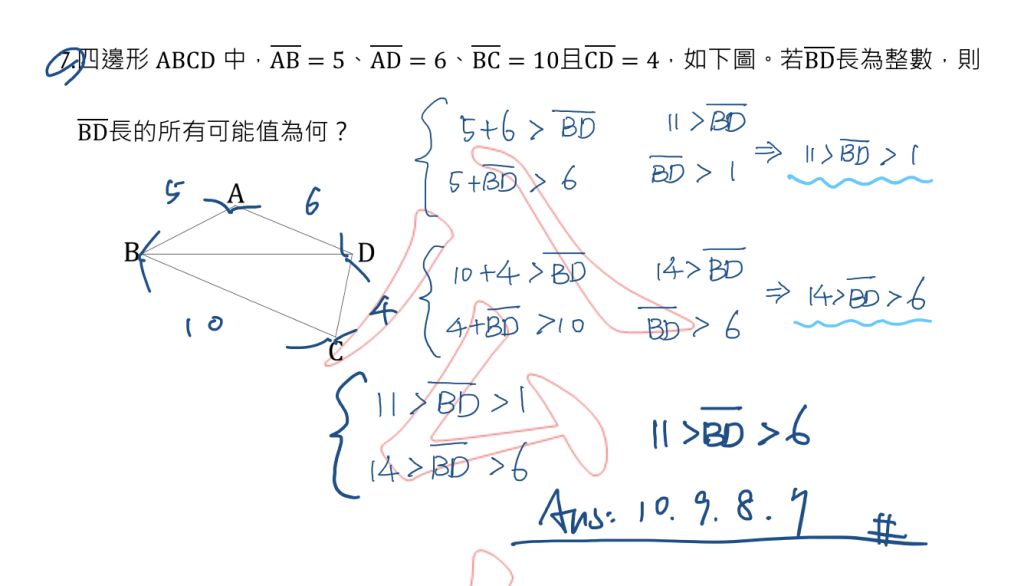 7.四邊形 ABCD 中，AB = 5、AD = 6、BC = 10且CD = 4，如下圖。若BD長為整數，則
BD長的所有可能值為何？
5+6 > BD 11 > BD
5+BD > 6 BD > 1 ⇒ 11 > BD > 1
5 A 6
B D
10 4
C
10+4 > BD 14 > BD
4+BD > 10 BD > 6 ⇒ 14 > BD > 6
11 > BD > 1
14 > BD > 6
11 > BD > 6
Ans: 10. 9. 8. 7 #